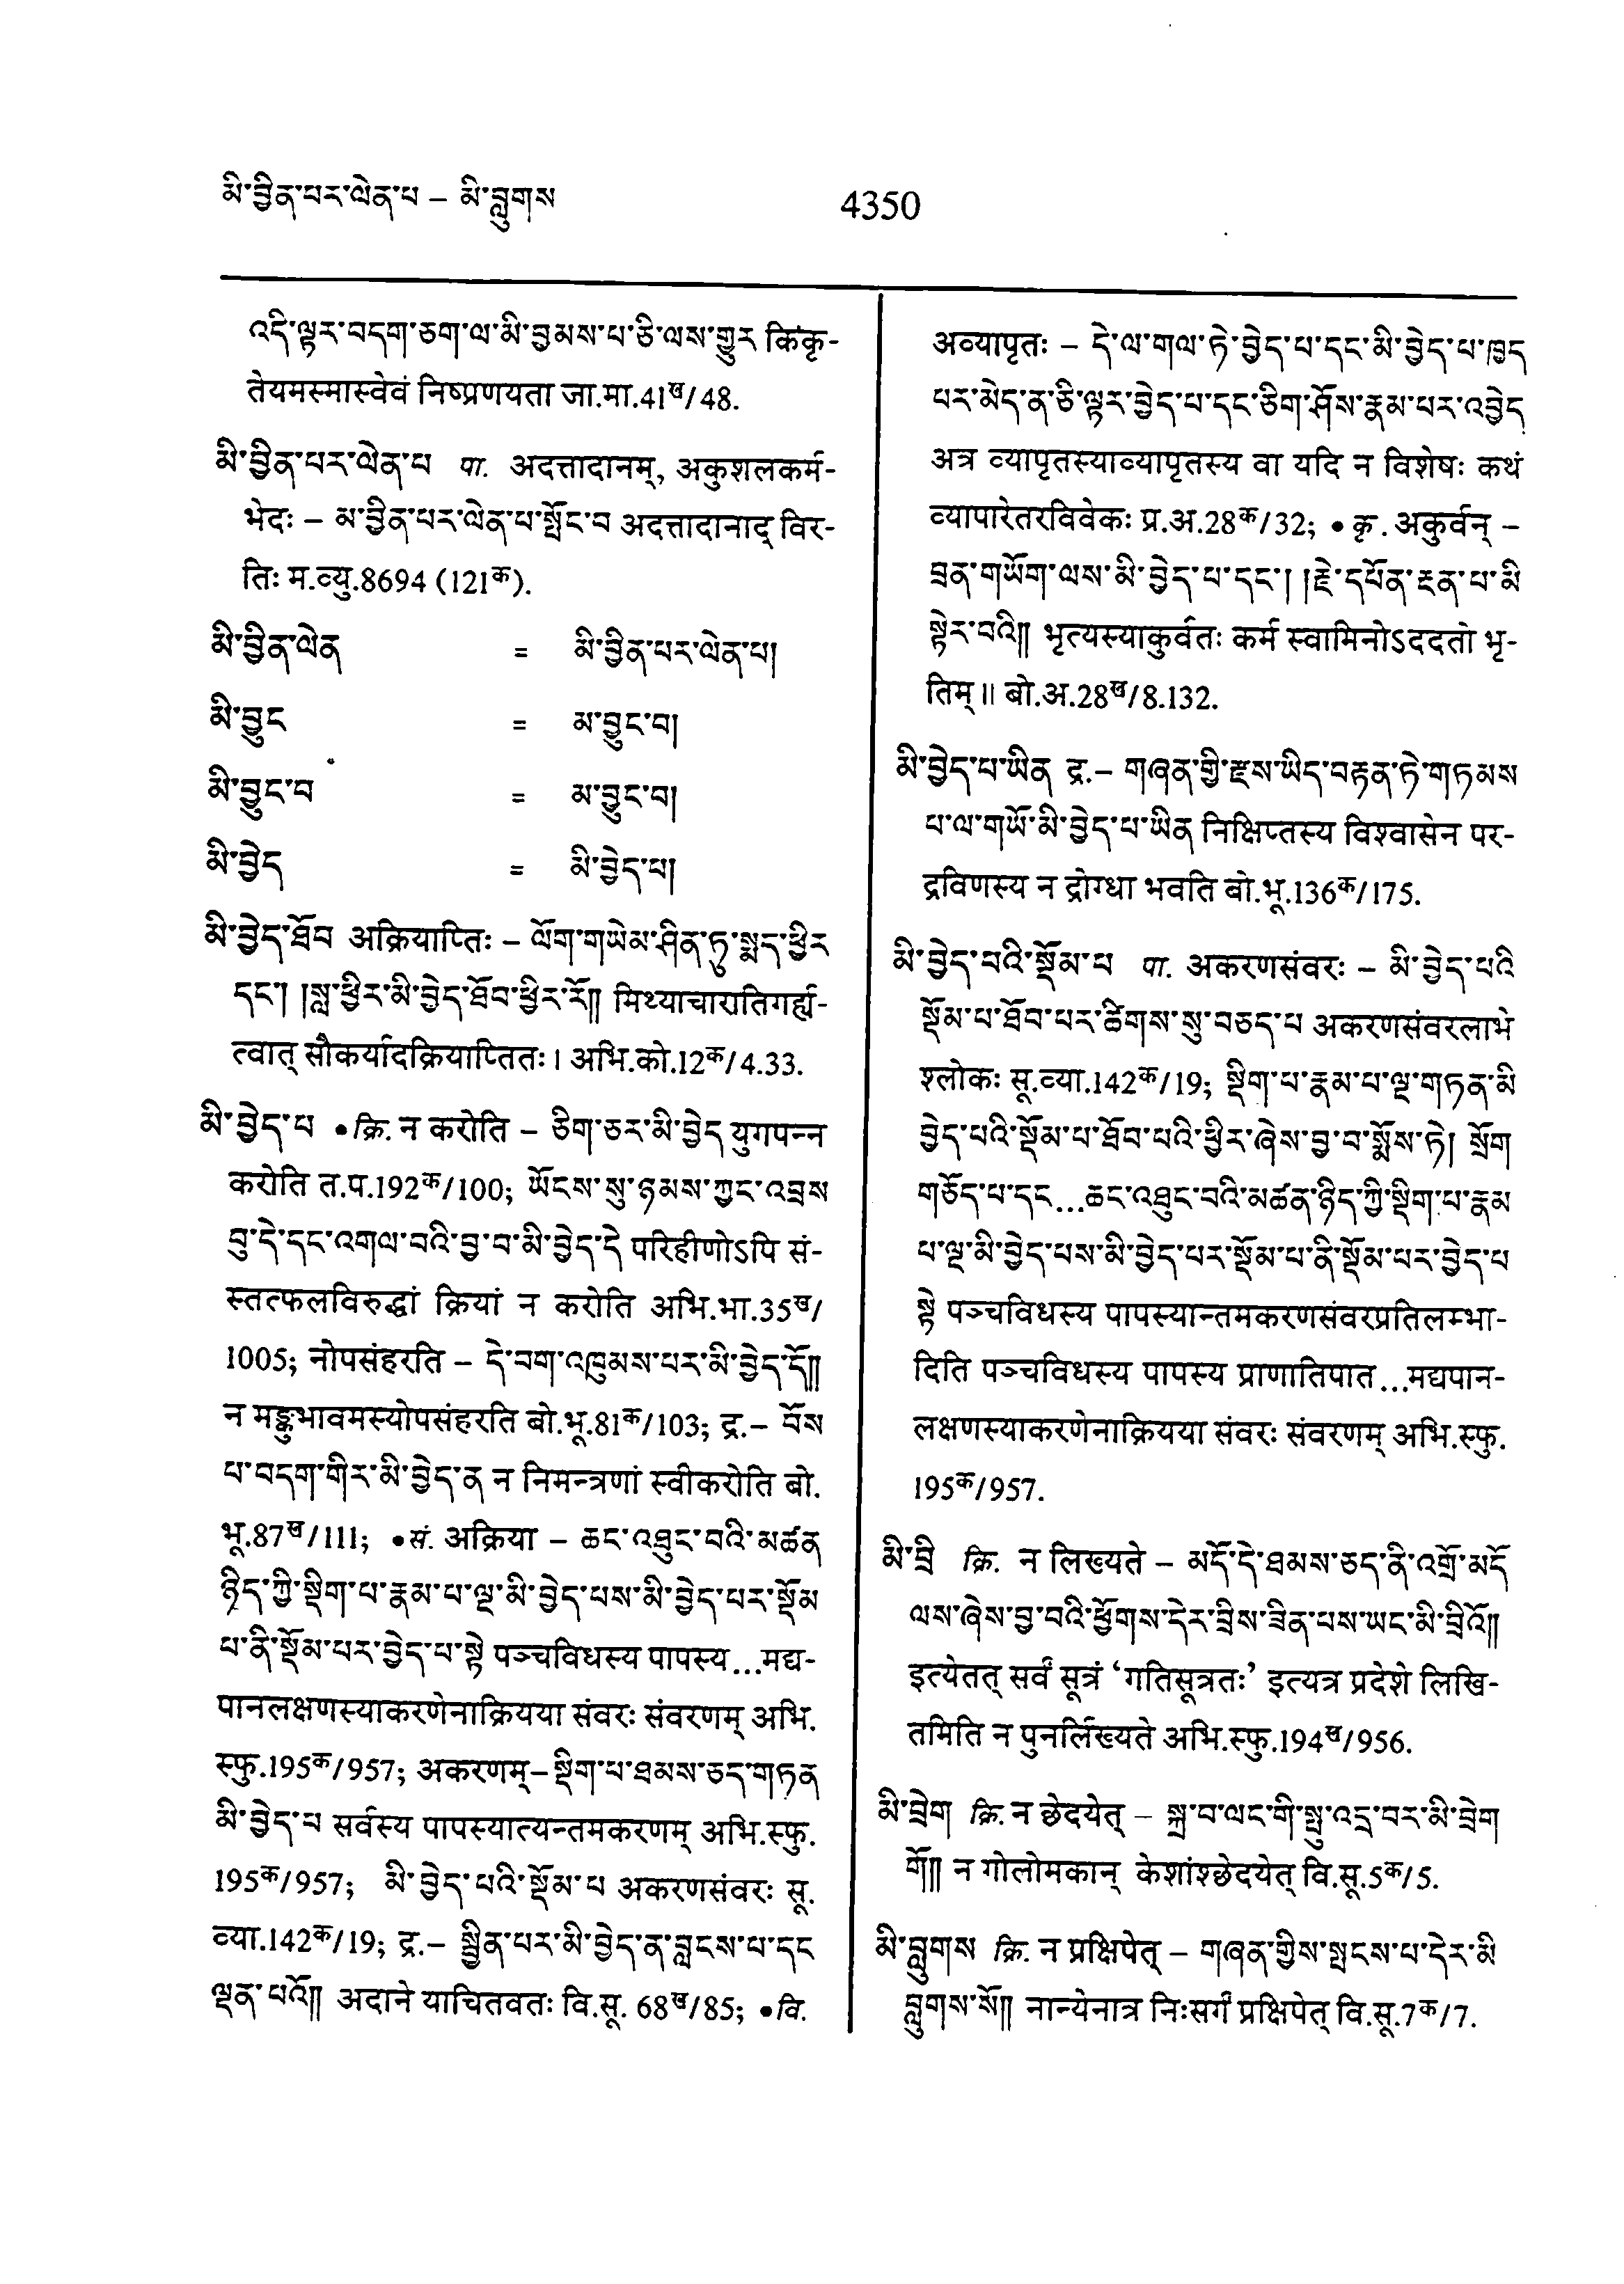 མི་བྱིན་པར་ལེན་པ – མི་བླུགས
4350
འདི་ལྟར་བདག་ཅག་ལ་མི་བྱམས་པ་ཅི་ལས་གྱུར किंकृ-
तेयमस्मास्वेवं निष्प्रणयता जा.मा.41ख/48.
མི་བྱིན་པར་ལེན་པ पा. अदत्तादानम्, अकुशलकर्म-
भेदः – མ་བྱིན་པར་ལེན་པ་སྤོང་བ अदत्तादानाद् विर-
तिः म.व्यु.8694 (121क).
མི་བྱིན་ལེན = མི་བྱིན་པར་ལེན་པ།
མི་བྱུང = མ་བྱུང་བ།
མི་བྱུང་བ = མ་བྱུང་བ།
མི་བྱེད = མི་བྱེད་པ།
མི་བྱེད་ཐོབ अक्रियाप्तिः – ལོག་གཡེམ་ཤིན་ཏུ་སྨད་ཕྱིར
དང་། །སླ་ཕྱིར་མི་བྱེད་ཐོབ་ཕྱིར་རོ༎ मिथ्याचारातिगर्ह्य-
त्वात् सौकर्यादक्रियाप्तितः। अभि.को.12क/4.33.
མི་བྱེད་པ •क्रि. न करोति – ཅིག་ཅར་མི་བྱེད युगपन्न
करोति त.प.192क/100; ཡོངས་སུ་ཉམས་ཀྱང་འབྲས
བུ་དེ་དང་འགལ་བའི་བྱ་བ་མི་བྱེད་དེ परिहीणोऽपि सं-
स्तत्फलविरुद्धां क्रियां न करोति अभि.भा.35ख/
1005; नोपसंहरति – དེ་བག་འཁུམས་པར་མི་བྱེད་དོ༎
न मङ्कुभावमस्योपसंहरति बो.भू.81क/103; द्र.– པོས
པ་བདག་གིར་མི་བྱེད་ན न निमन्त्रणां स्वीकरोति बो.
भू.87ख/111; •सं. अक्रिया – ཆང་འཐུང་བའི་མཚན
ཉིད་ཀྱི་སྡིག་པ་རྣམ་པ་ལྔ་མི་བྱེད་པས་མི་བྱེད་པར་སྡོམ
པ་ནི་སྡོམ་པར་བྱེད་པ་སྟེ पञ्चविधस्य पापस्य...मद्य-
पानलक्षणस्याकरणेनाक्रियया संवरः संवरणम् अभि.
स्फु.195क/957; अकरणम्– སྡིག་པ་ཐམས་ཅད་གཏན
མི་བྱེད་པ सर्वस्य पापस्यात्यन्तमकरणम् अभि.स्फु.
195क/957; མི་བྱེད་པའི་སྡོམ་པ अकरणसंवरः सू.
व्या.142क/19; द्र.– སྦྱིན་པར་མི་བྱེད་ན་བླངས་པ་དང
ལྡན་པའོ༎ अदाने याचितवतः वि.सू. 68ख/85; •वि.
अव्यापृतः – དེ་ལ་གལ་ཏེ་བྱེད་པ་དང་མི་བྱེད་པ་ཁྱད
པར་མེད་ན་ཅི་ལྟར་བྱེད་པ་དང་ཅིག་ཤོས་རྣམ་པར་འབྱེད
अत्र व्यापृतस्याव्यापृतस्य वा यदि न विशेषः कथं
व्यापारेतरविवेकः प्र.अ.28क/32; •कृ. अकुर्वन् –
བྲན་གཡོག་ལས་མི་བྱེད་པ་དང་། །རྗེ་དཔོན་རྔན་པ་མི
སྟེར་བའི༎ भृत्यस्याकुर्वतः कर्म स्वामिनोऽददतो भृ-
तिम्॥ बो.अ.28ख/8.132.
མི་བྱེད་པ་ཡིན द्र.– གཞན་གྱི་རྫས་ཡིད་བརྟན་ཏེ་གཏམས
པ་ལ་གཡོ་མི་བྱེད་པ་ཡིན निक्षिप्तस्य विश्वासेन पर-
द्रविणस्य न द्रोग्धा भवति बो.भू.136क/175.
མི་བྱེད་པའི་སྡོམ་པ पा. अकरणसंवरः – མི་བྱེད་པའི
སྡོམ་པ་ཐོབ་པར་ཚིགས་སུ་བཅད་པ अकरणसंवरलाभे
श्लोकः सू.व्या.142क/19; སྡིག་པ་རྣམ་པ་ལྔ་གཏན་མི
བྱེད་པའི་སྡོམ་པ་ཐོབ་པའི་ཕྱིར་ཞེས་བྱ་བ་སྨོས་ཏེ། སྲོག
གཅོད་པ་དང...ཆང་འཐུང་བའི་མཚན་ཉིད་ཀྱི་སྡིག་པ་རྣམ
པ་ལྔ་མི་བྱེད་པས་མི་བྱེད་པར་སྡོམ་པ་ནི་སྡོམ་པར་བྱེད་པ
སྟེ पञ्चविधस्य पापस्यान्तमकरणसंवरप्रतिलम्भा-
दिति पञ्चविधस्य पापस्य प्राणातिपात...मद्यपान-
लक्षणस्याकरणेनाक्रियया संवरः संवरणम् अभि.स्फु.
195क/957.
མི་བྲི क्रि. न लिख्यते – མདོ་དེ་ཐམས་ཅད་ནི་འགྲོ་མདོ
ལས་ཞེས་བྱ་བའི་ཕྱོགས་དེར་བྲིས་ཟིན་པས་ཡང་མི་བྲིའོ༎
इत्येतत् सर्वं सूत्रं ‘गतिसूत्रतः’ इत्यत्र प्रदेशे लिखि-
तमिति न पुनर्लिख्यते अभि.स्फु.194ख/956.
མི་བྲེག क्रि. न छेदयेत् – སྐྲ་བ་ལང་གི་སྤུ་འདྲ་བར་མི་བྲེག
གོ༎ न गोलोमकान् केशांश्छेदयेत् वि.सू.5क/5.
མི་བླུགས क्रि. न प्रक्षिपेत् – གཞན་གྱིས་སྤངས་པ་དེར་མི
བླུགས་སོ༎ नान्येनात्र निःसर्गं प्रक्षिपेत् वि.सू.7क/7.